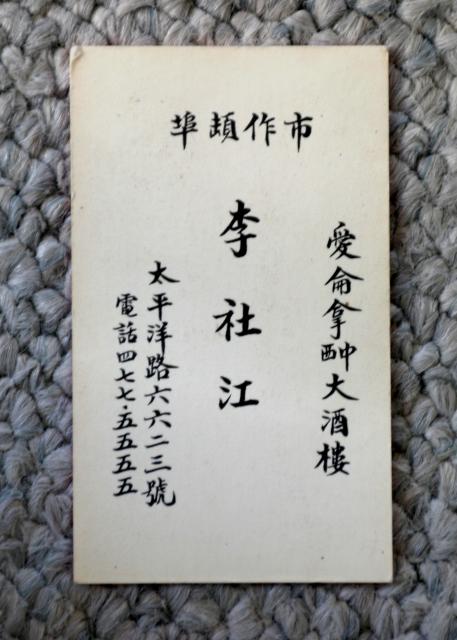 市作頓埠
愛侖拿中西大酒樓
李社江
太平洋路六六二三號
電話四七七·五五五五